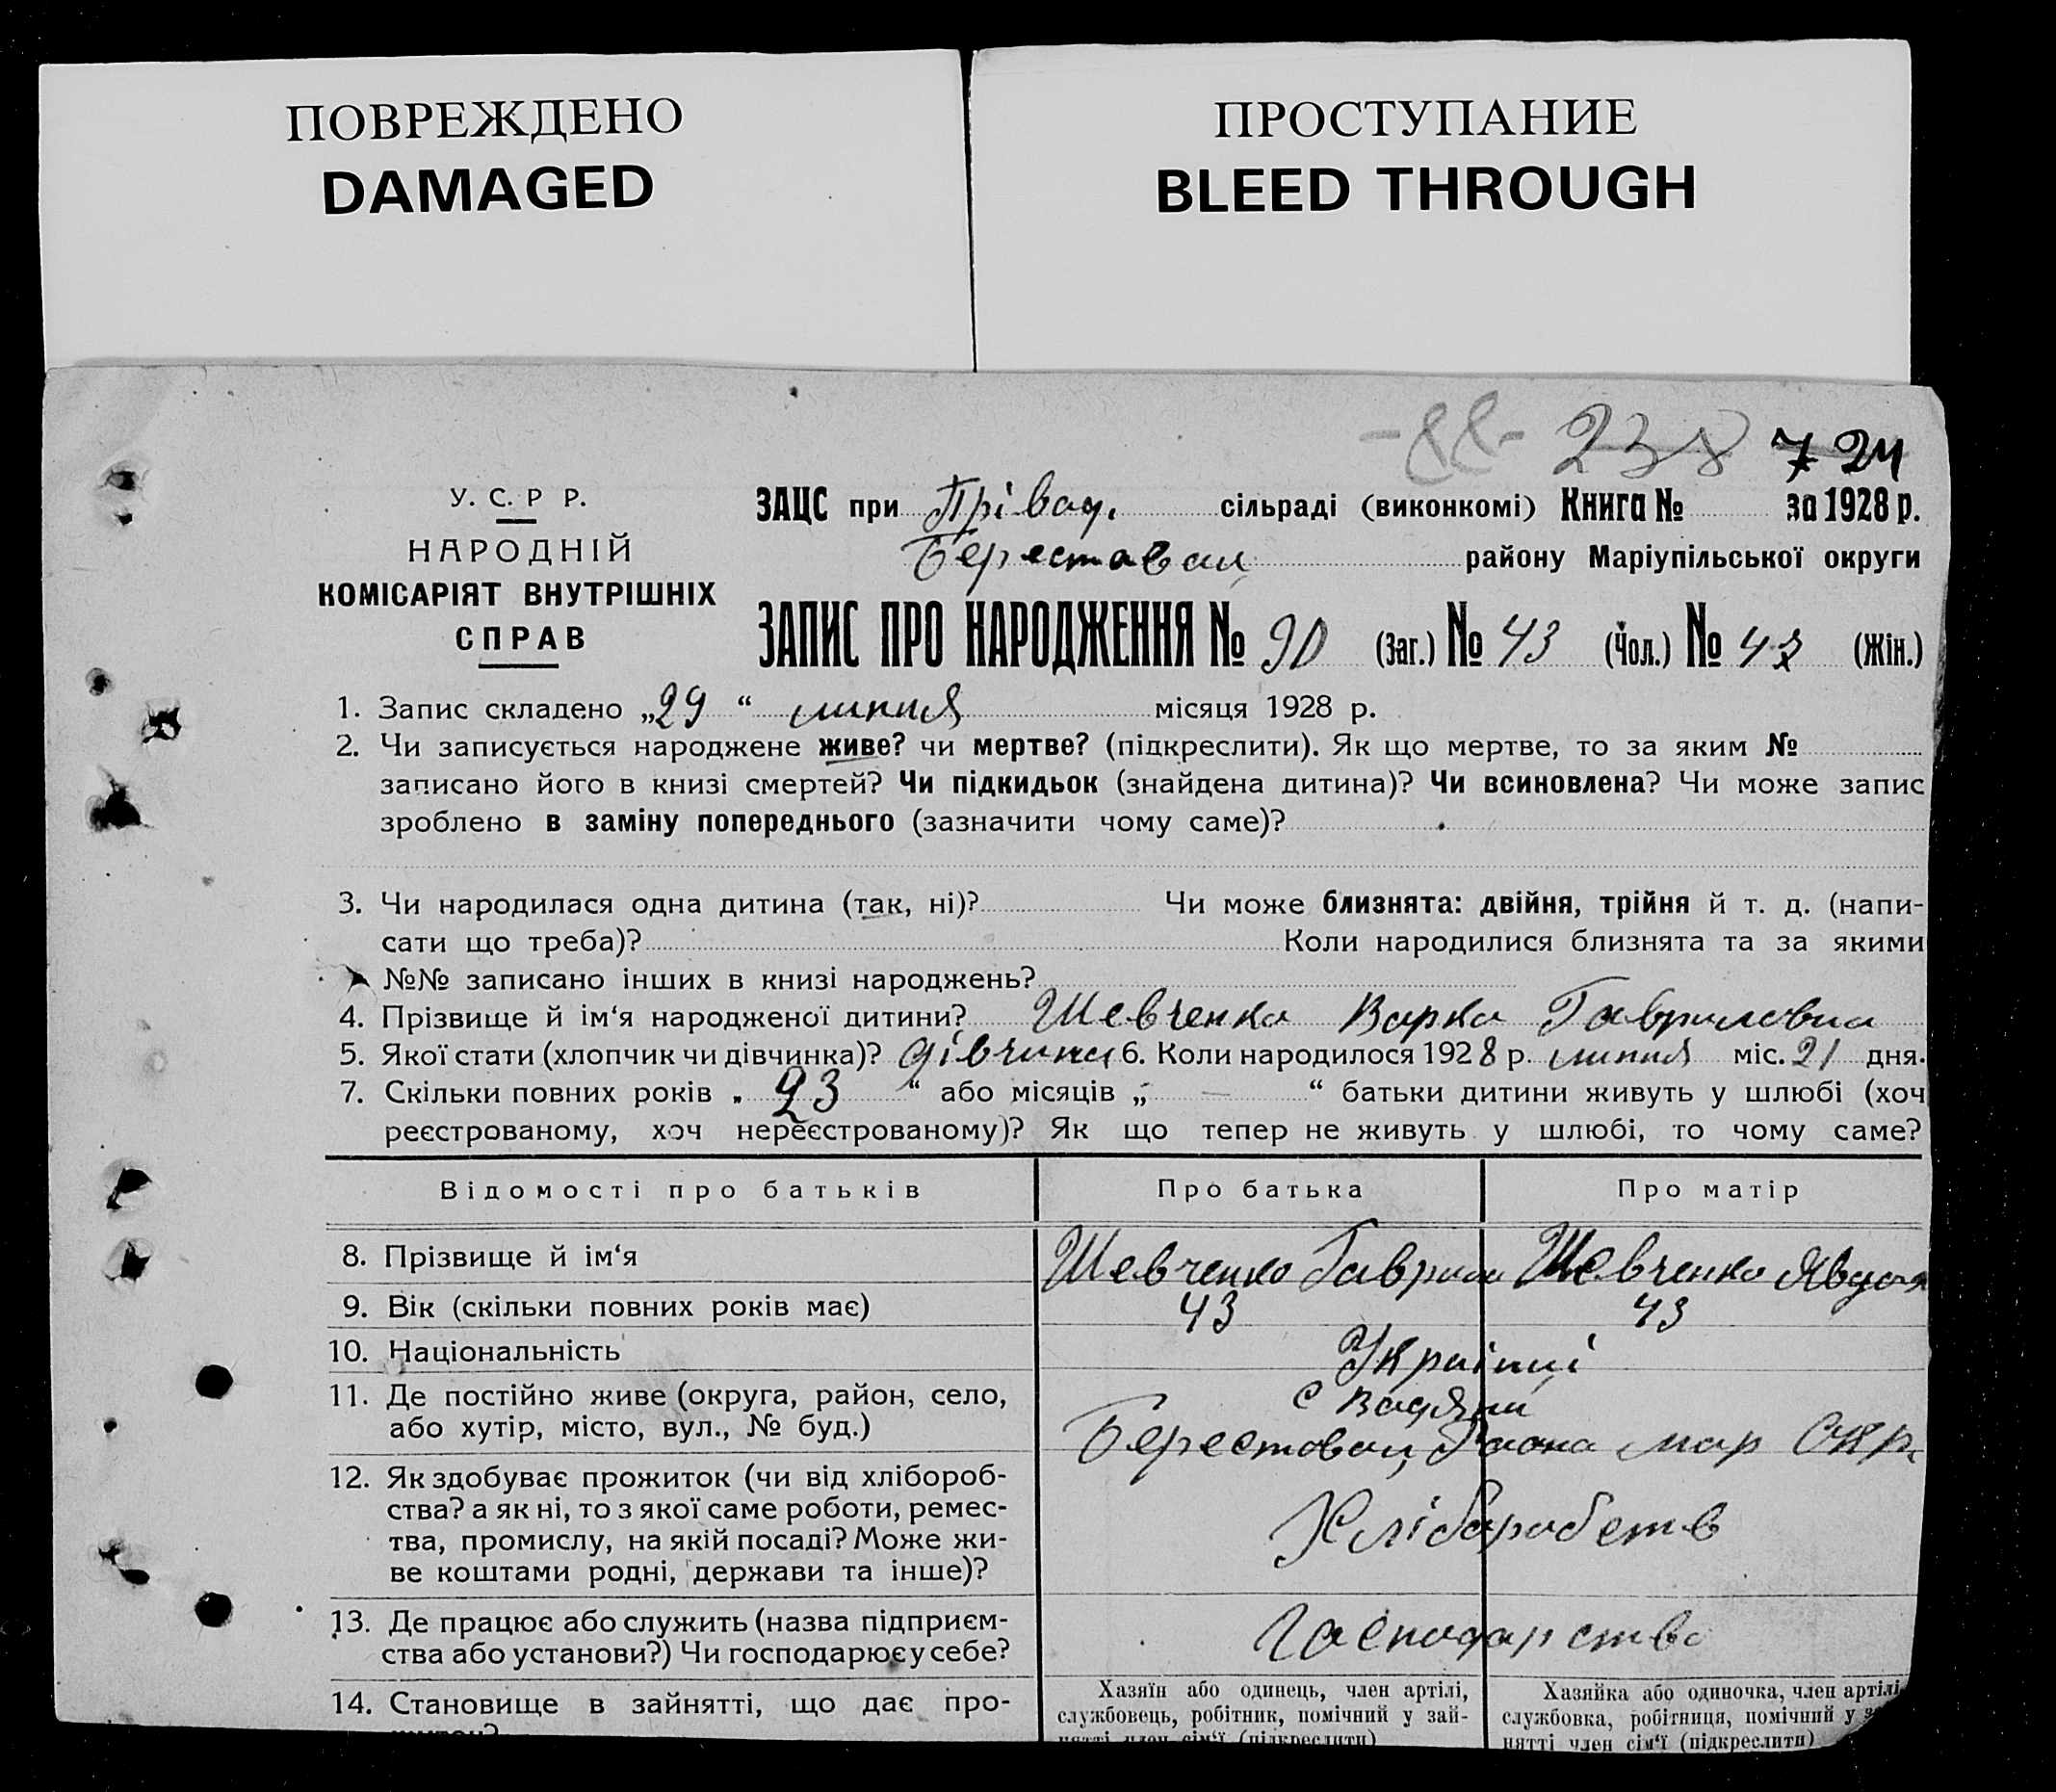 ПОВРЕЖДЕНО
DAMAGED
ПРОСТУПАНИЕ
BLEED THROUGH
-88- 238 724
У. С. Р Р.
НАРОДНІЙ
КОМІСАРІЯТ ВНУТРІШНІХ
СПРАВ
ЗАЦС при Прівод. сільраді (виконкомі) Книга № за 1928 р.
Берестовал району Маріупільської округи
ЗАПИС ПРО НАРОДЖЕННЯ № 90 (Заг.) № 43 (Чол.) № 47 (Жін.)
1. Запис складено „29“ липня місяця 1928 р.
2. Чи записується народжене живе? чи мертве? (підкреслити). Як що мертве, то за яким №
записано його в книзі смертей? Чи підкидьок (знайдена дитина)? Чи всиновлена? Чи може запис
зроблено в заміну попереднього (зазначити чому саме)?
3. Чи народилася одна дитина (так, ні)? Чи може близнята: двійня, трійня й т. д. (напи-
сати що треба)? Коли народилися близнята та за якими
№№ записано інших в книзі народжень?
4. Прізвище й ім‘я народженої дитини? Шевченко Варка Гавриловна
5. Якої стати (хлопчик чи дівчинка)? дівчина 6. Коли народилося 1928 р. липня міс. 21 дня.
7. Скільки повних років „ 23 “ або місяців „ — “ батьки дитини живуть у шлюбі (хоч
реєстрованому, хоч нереєстрованому)? Як що тепер не живуть у шлюбі, то чому саме?
Відомості про батьків Про батька Про матір
8. Прізвище й ім‘я Шевченко Гаврило Шевченко Явдоя
9. Вік (скільки повних років має) 43 43
10. Національність Українці
11. Де постійно живе (округа, район, село, с Водяни
або хутір, місто, вул., № буд.) Берестовал, Району мар Окр.
12. Як здобуває прожиток (чи від хлібороб-
ства? а як ні, то з якої саме роботи, ремес- Хліборобств
тва, промислу, на якій посаді? Може жи-
ве коштами родні, держави та інше)?
13. Де працює або служить (назва підприєм- Господарство
ства або установи?) Чи господарює у себе?
14. Становище в зайнятті, що дає про-
Хазяїн або одинець, член артілі,
службовець, робітник, помічний у зай-
нятті член сім‘ї (підкреслити)
Хазяйка або одиночка, член артілі
службовка, робітниця, помічний у
нятті член сім‘ї (підкреслити)